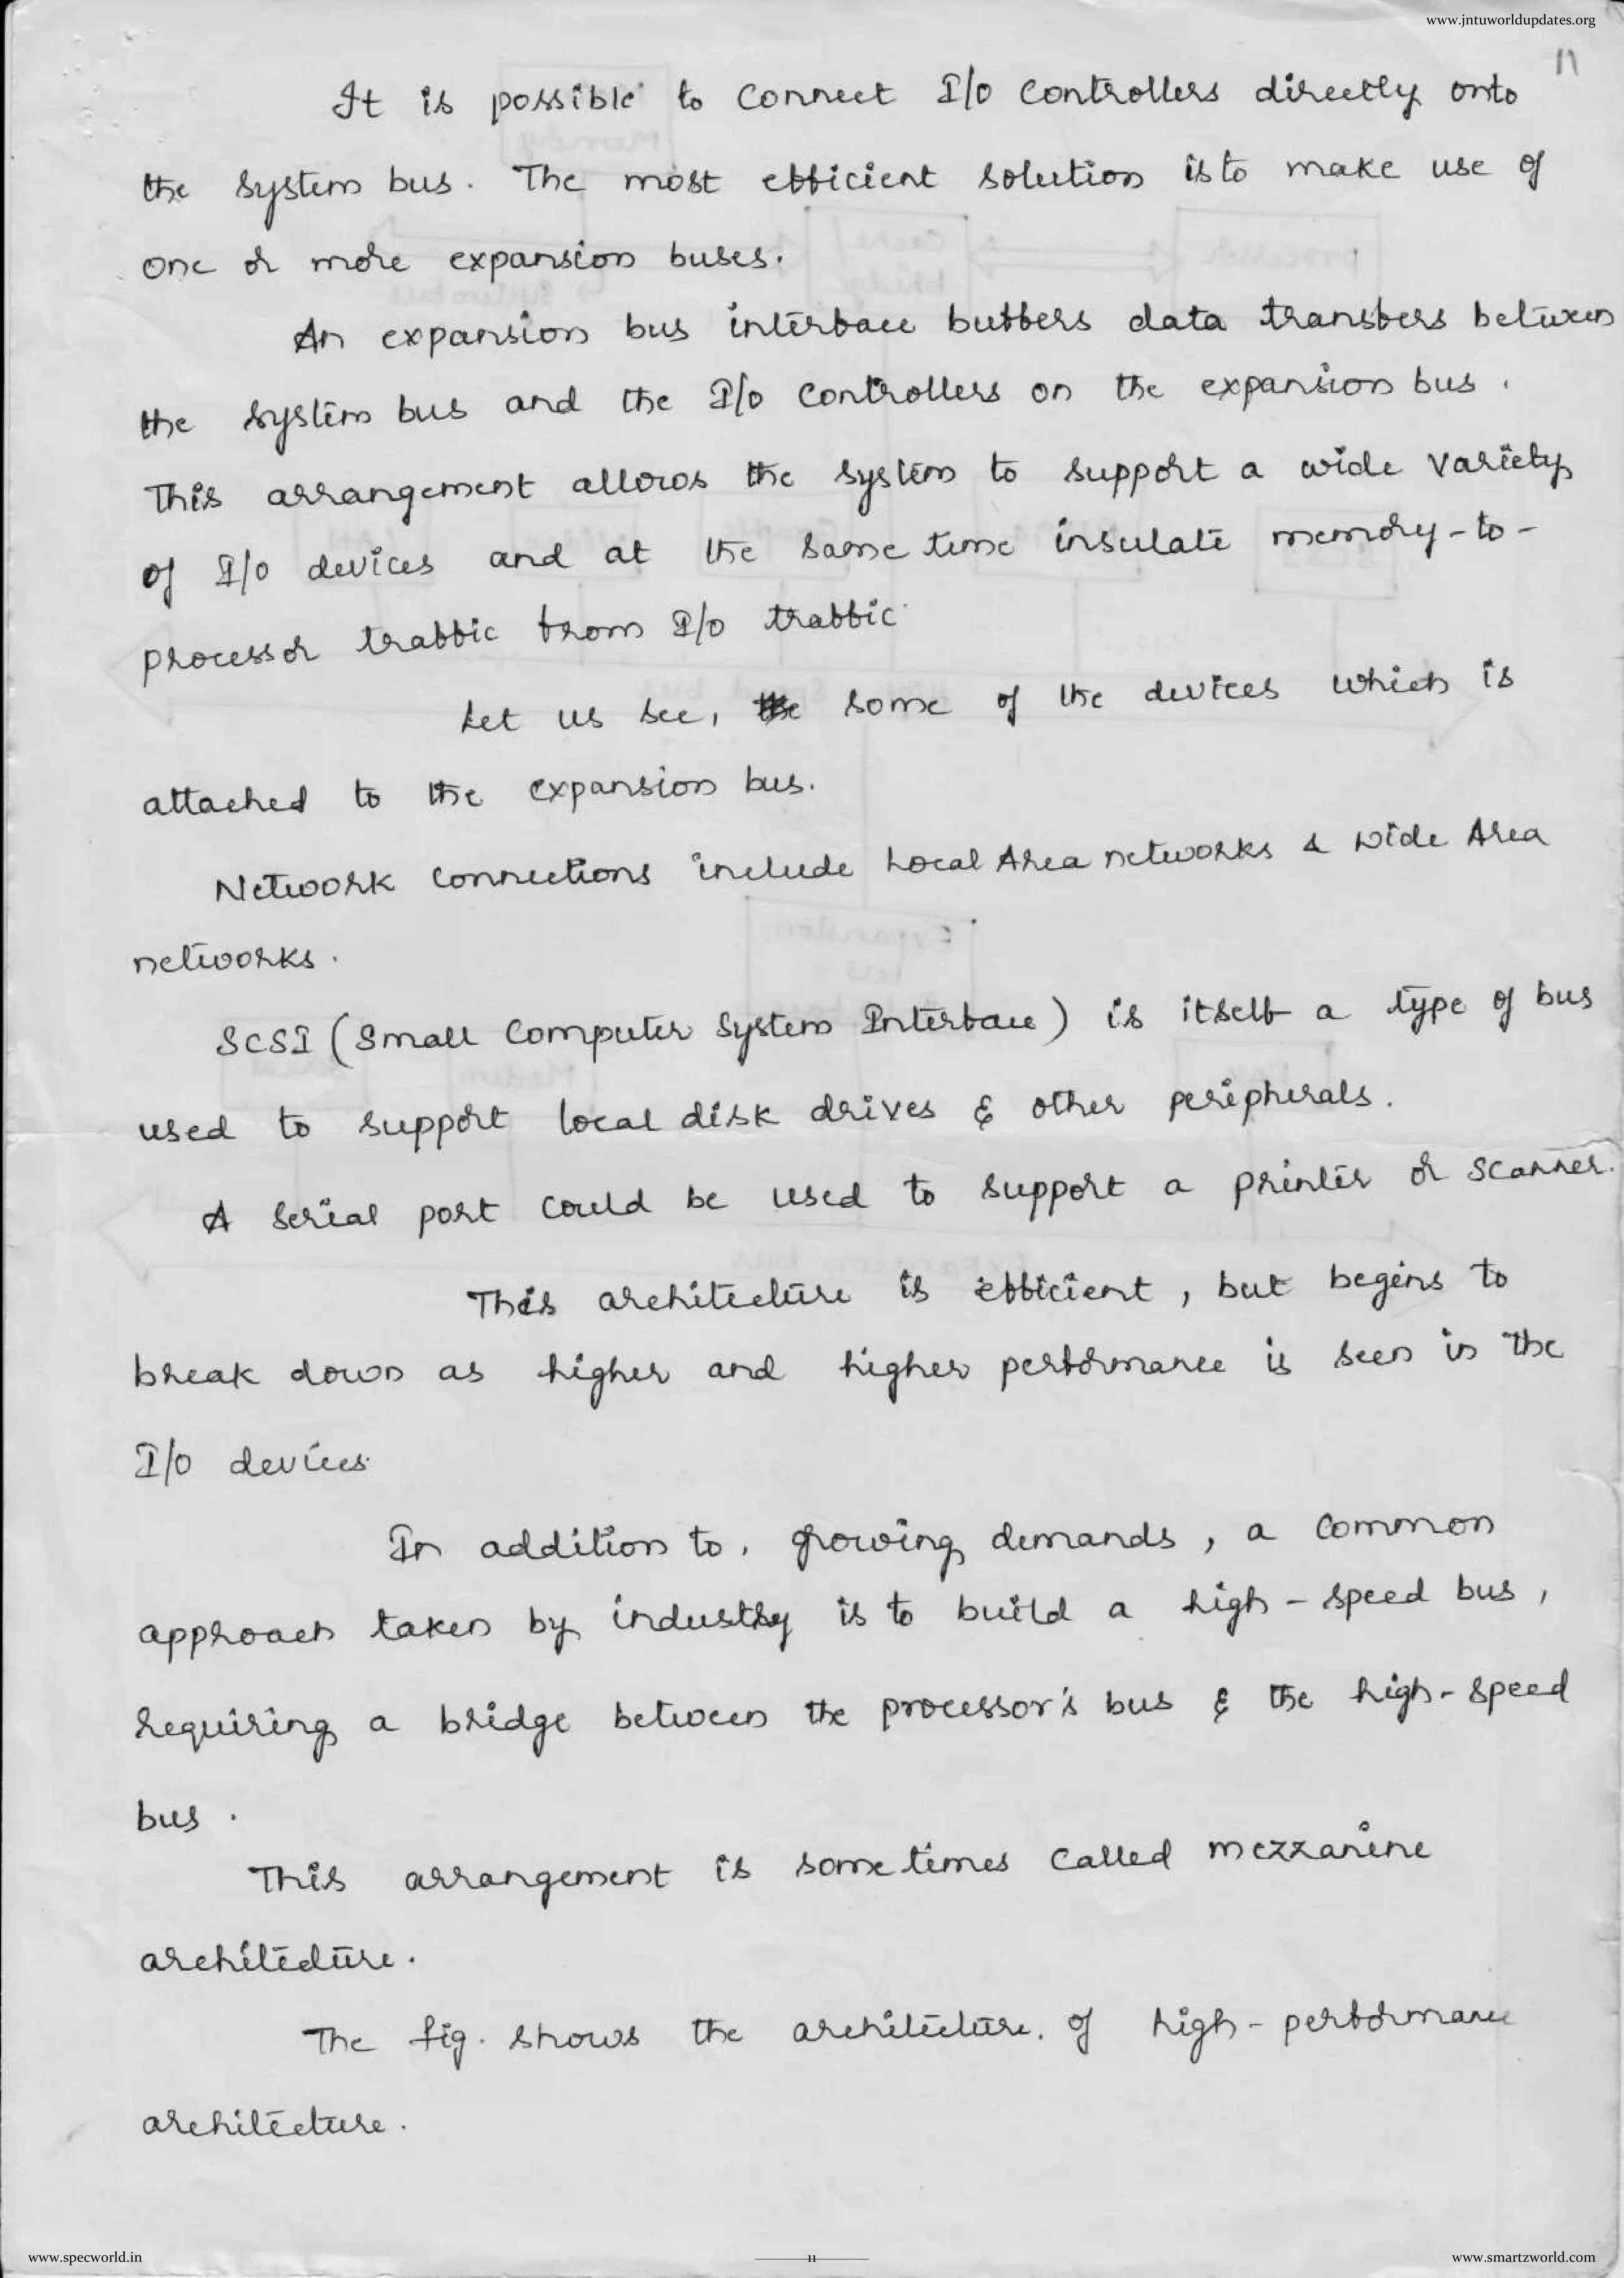 www.jntuworldupdates.org
11
It is possible to connect I/o controllers directly onto
the system bus. The most efficient solution is to make use of
one or more expansion buses.
An expansion bus interface buffers data transfers between
the system bus and the I/o controllers on the expansion bus.
This arrangement allows the system to support a wide variety
of I/o devices and at the same time insulate memory-to-
processor traffic from I/o traffic.
Let us see, the some of the devices which is
attached to the expansion bus.
Network connections include Local Area networks & Wide Area
networks.
SCSI (Small Computer System Interface) is itself a type of bus
used to support local disk drives & other peripherals.
A serial port could be used to support a printer or scanner.
This architecture is efficient, but begins to
break down as higher and higher performance is seen in the
I/o devices.
In addition to, growing demands, a common
approach taken by industry is to build a high-speed bus,
requiring a bridge between the processor's bus & the high-speed
bus.
This arrangement is some times called mezzanine
architecture.
The fig. shows the architecture. of high-performance
architecture.
www.specworld.in
11
www.smartzworld.com